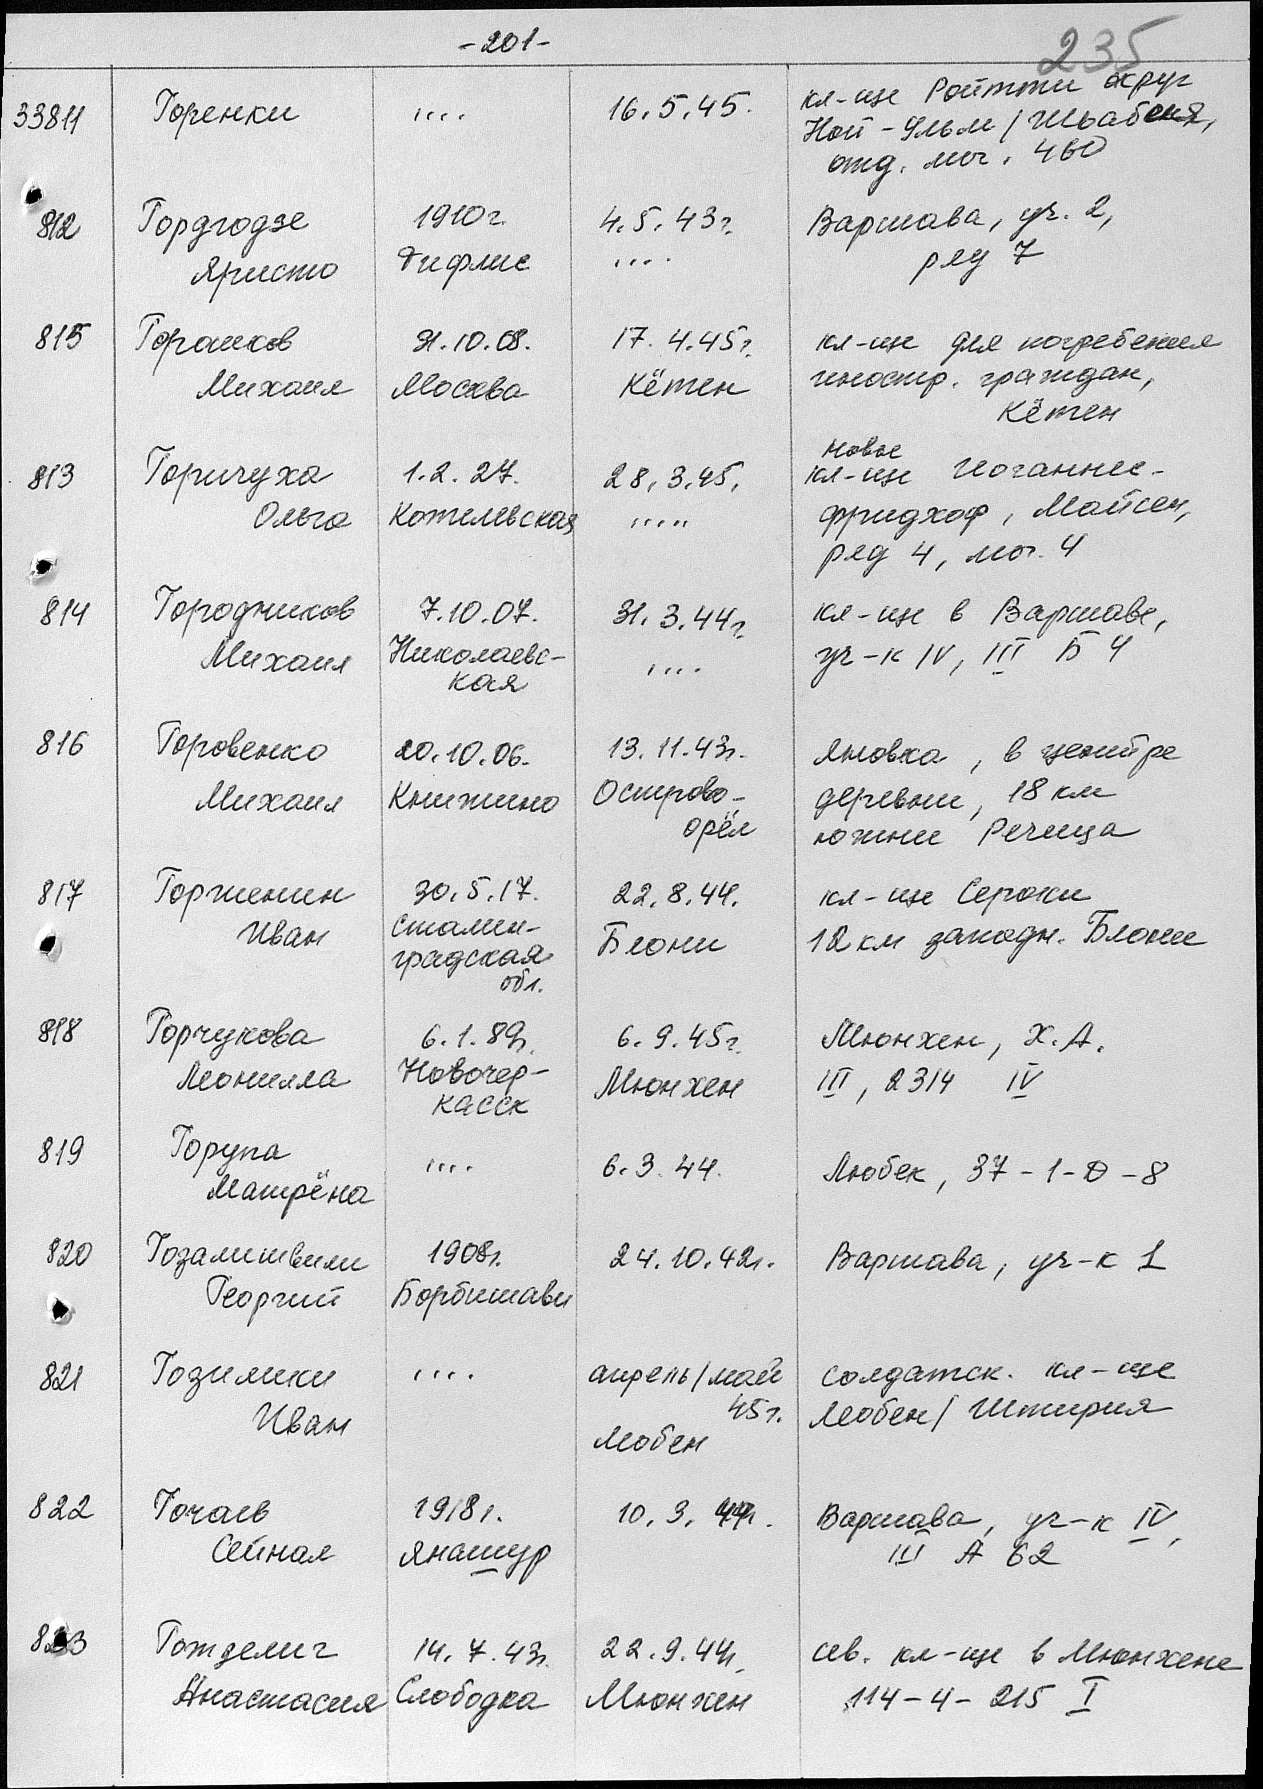 -201-
235
33811 Горенки .... 16.5.45. кл-ще Ройтти округ
Ной-Ульм/Швабения,
отд. мог. 460
812 Гордгодзе 1910г. 4.5.43г. Варшава, уч. 2,
Аристо Тифлис .... ряд 7
815 Горошков 31.10.08. 17.4.45г. кл-ще для погребения
Михаил Москва Кётен иностр. граждан,
Кётен
новое
813 Горичуха 1.2.27. 28.3.45. кл-ще Иоганнес-
Ольга Котилевская ..... фридхоф, Майсен,
ряд 4, мог. 4
814 Городников 7.10.07. 31.3.44г. кл-ще в Варшаве,
Михаил Николаевс- .... уч-к IV, III Б 4
кая
816 Горовенко 20.10.06. 13.11.43г. Яновка, в центре
Михаил Книжино Острово- деревни, 18 км
орёл южнее Речица
817 Горженин 30.5.17. 22.8.44. кл-ще Сероки
Иван Сталин- Блони 12 км западн. Блоние
градская
обл.
818 Горчукова 6.1.89г. 6.9.45г. Мюнхен, Х.А.
Леонилла Новочер- Мюнхен III, 2314 IV
касск
819 Горупа .... 6.3.44. Любек, 37-1-D-8
Матрёна
820 Гозалишвили 1908г. 24.10.42г. Варшава, уч-к 1
Георгий Борбишави
821 Гозилики .... апрель/май солдатск. кл-ще
Иван 45г. Леобен/Штирия
Леобен
822 Гочаев 1918г. 10.3.44г. Варшава, уч-к IV,
Сейнал Янашур III А 62
823 Готделиг 14.7.43г. 22.9.44г. сев. кл-ще в Мюнхене
Анастасия Слободка Мюнхен 114-4-215 I